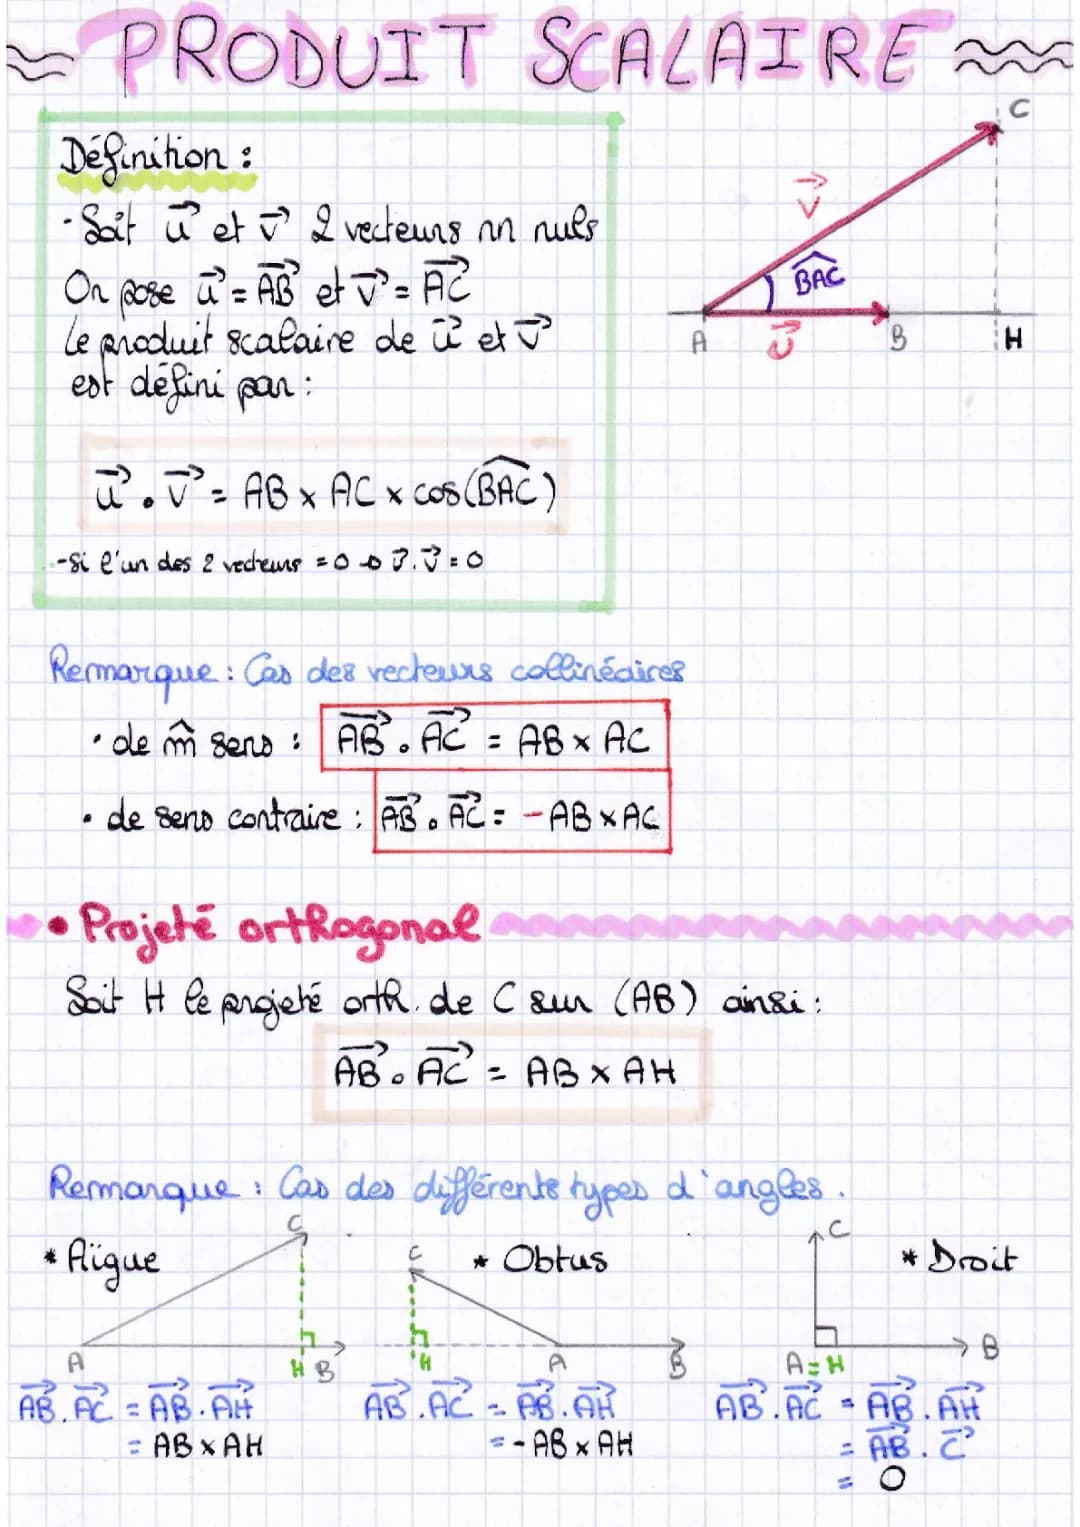 PRODUIT SCALAIRE
Définition :
- Soit u⃗ et v⃗ 2 vecteurs nn nuls
On pose u⃗ = AB⃗ et v⃗ = AC⃗
Le produit scalaire de u⃗ et v⃗
est défini par :
u⃗ . v⃗ = AB x AC x cos(BAC)
- si l'un des 2 vecteurs = 0 → u⃗ . v⃗ = 0
C
v⃗
BAC
A
u⃗
B
H
Remarque : Cas des vecteurs collinéaires
• de m̂ sens : AB⃗ . AC⃗ = AB x AC
• de sens contraire : AB⃗ . AC⃗ = -AB x AC
• Projeté orthogonal
Soit H le projeté orth. de C sur (AB) ainsi :
AB⃗ . AC⃗ = AB x AH
Remarque : Cas des différents types d'angles.
* Aïgue
C
A
H
B
AB⃗ . AC⃗ = AB⃗ . AH⃗
= AB x AH
* Obtus
C
H
A
B
AB⃗ . AC⃗ = AB⃗ . AH⃗
= - AB x AH
* Droit
C
A = H
B
AB⃗ . AC⃗ = AB⃗ . AH⃗
= AB⃗ . C⃗
= 0